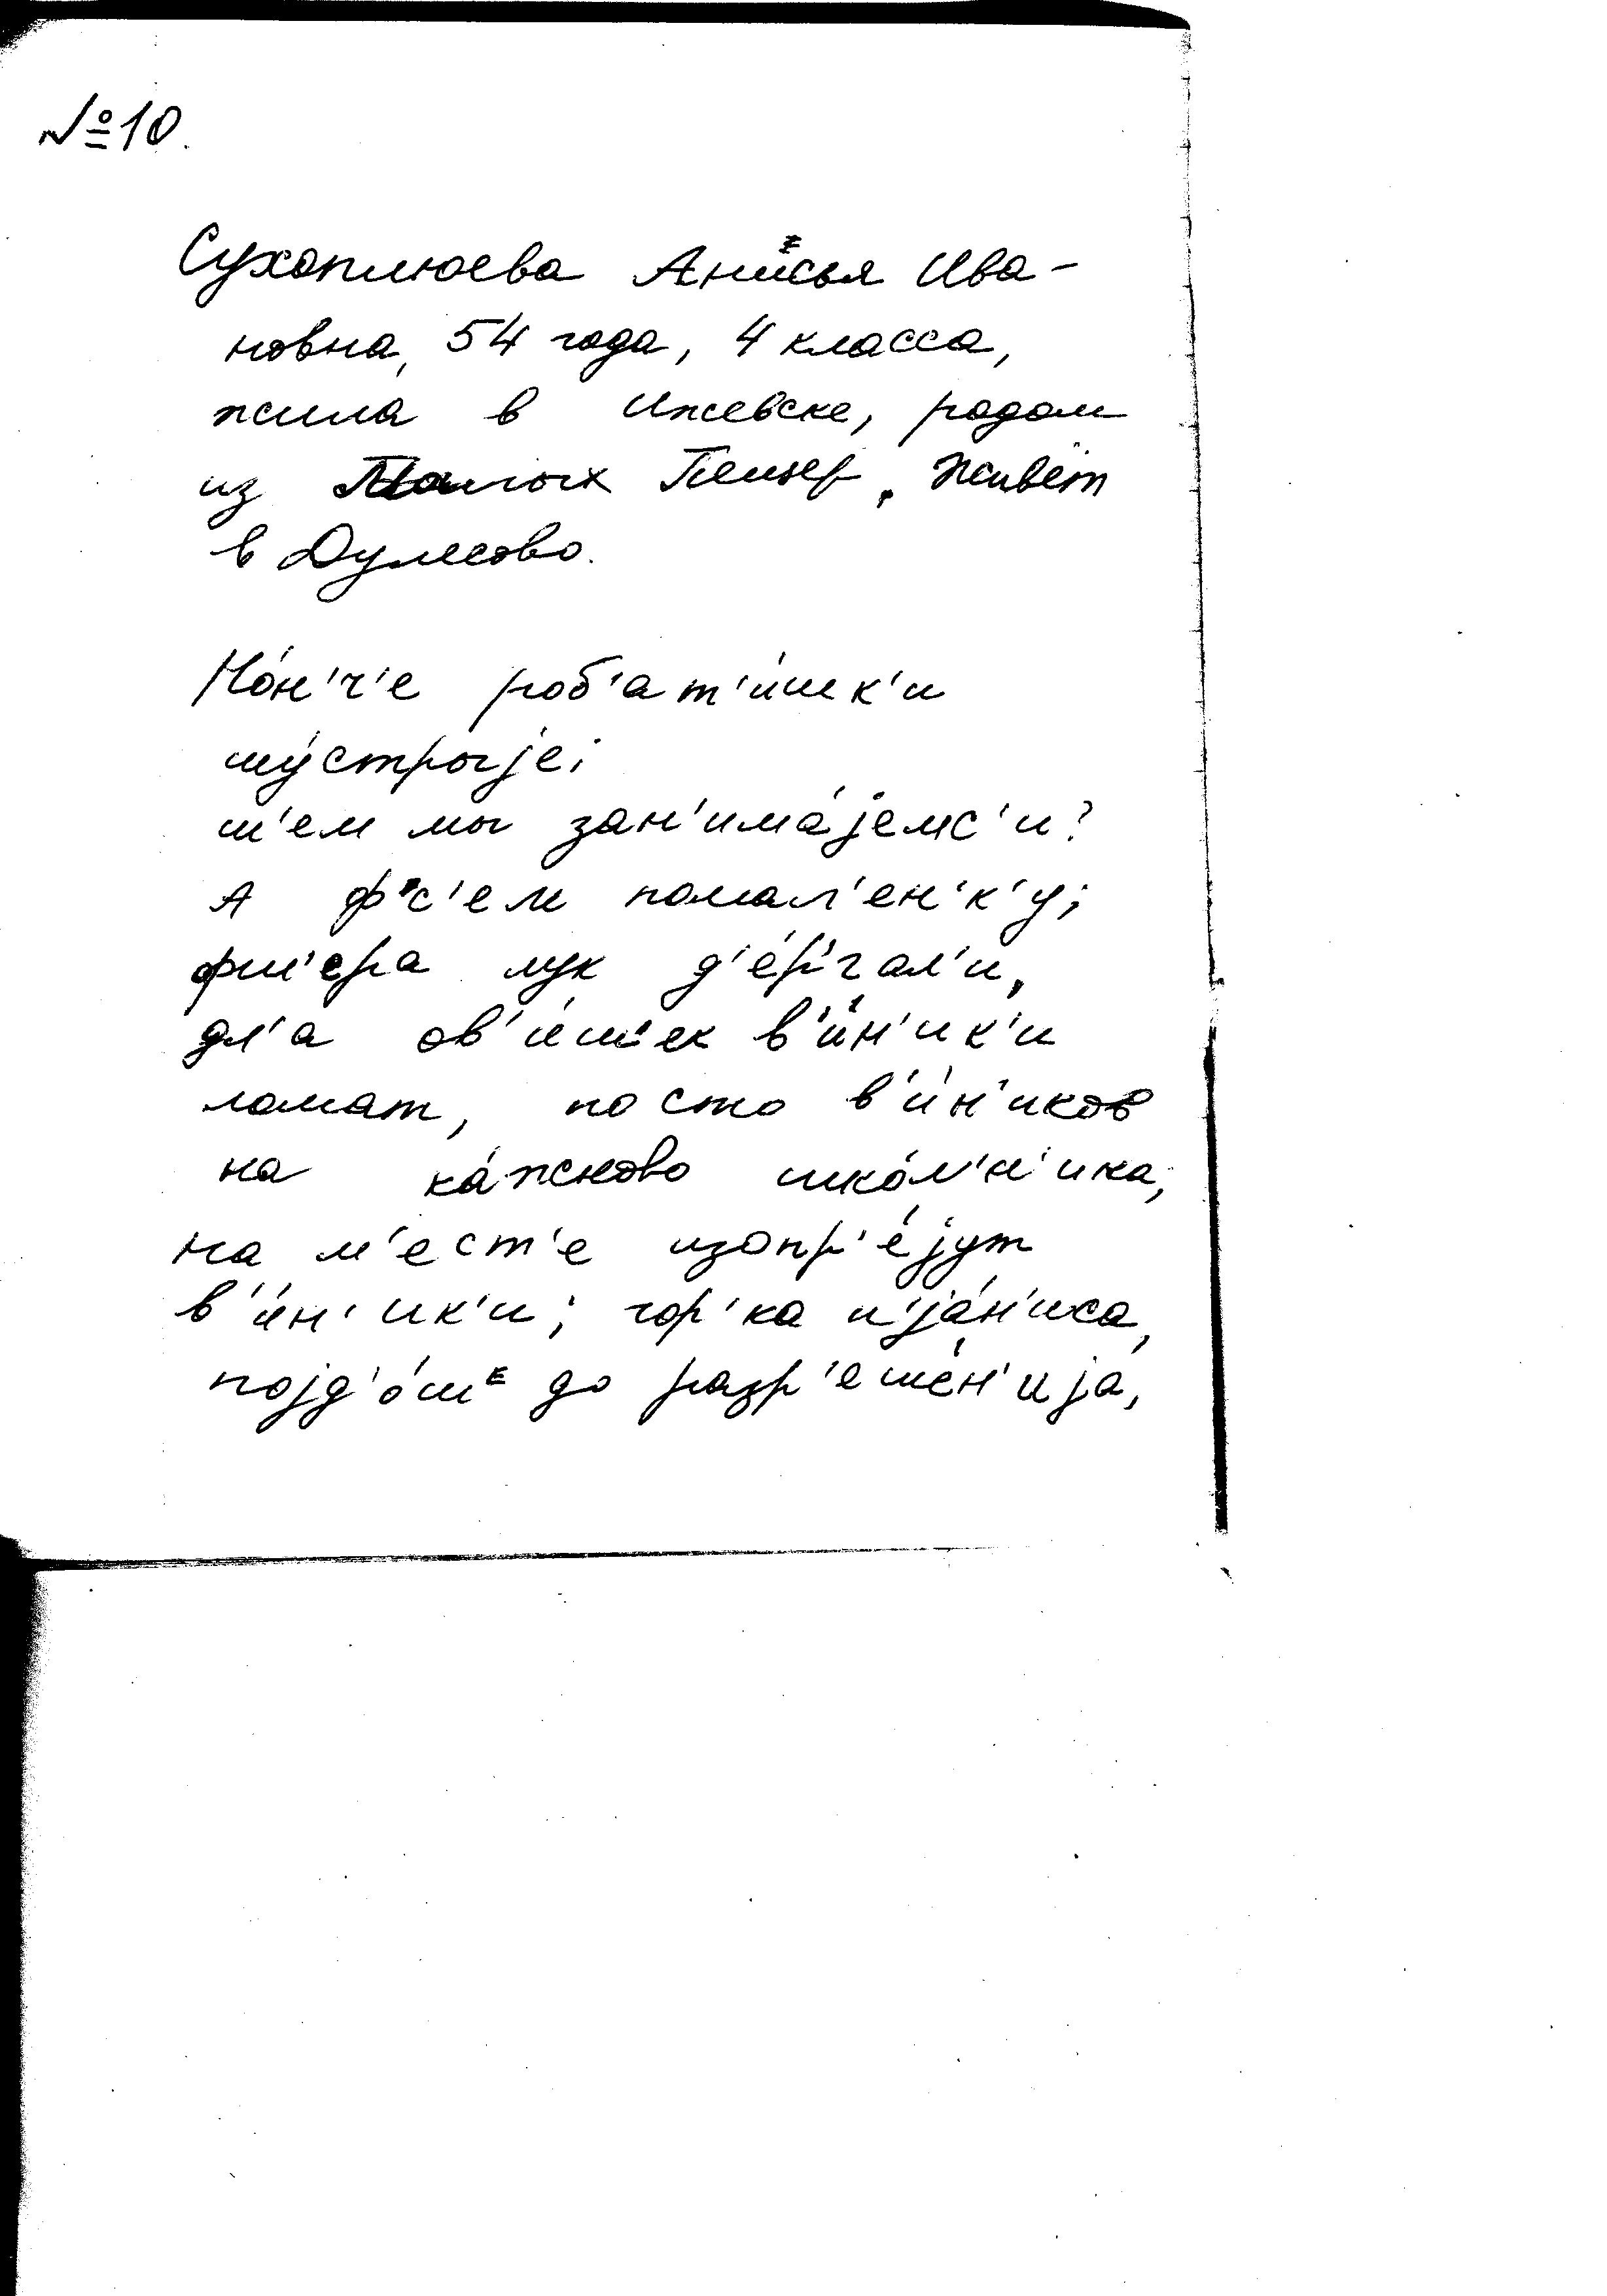 №10.
Сухоплюева Анисья Ива-
новна, 54 года, 4 класса,
жила в Ижевске, родом
из Малых Пельер. Живёт
в Дулесово.
Но́н'ч'е роб'ат'и́шк'и
шу́стрыjе;
ш'ем мы зан'има́jемс'и?
А ф с'ем помал'ен'к'у;
фш'ера лук д'е́р'гал'и,
дл'а ов'е́ш'ек в'и́н'ик'и
ломат, по сто в'и́н'иков
на ка́жново шко́л'н'ика;
на м'ест'е изопр'е́jут
в'и́н'ик'и; гор'ка п'jа́н'иса,
поjд'о́ш до разр'еше́н'иjа,